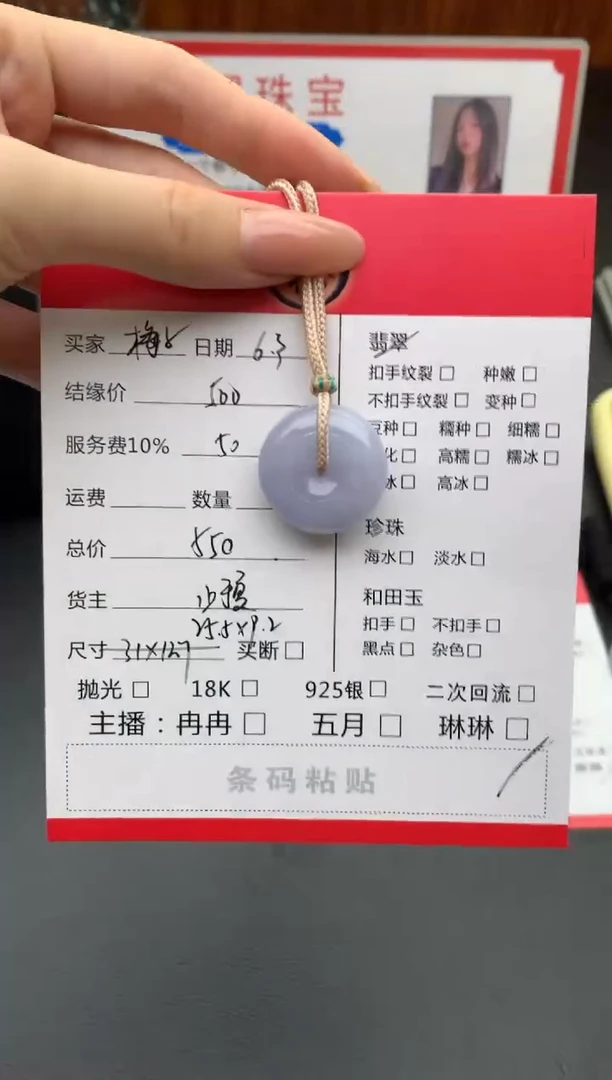 珠宝
买家 日期 6.3
结缘价 500
服务费10% 50
运费 数量
总价 550
货主
25.5×9.2
尺寸 31×12.7 买断□
翡翠
扣手纹裂□ 种嫩□
不扣手纹裂□ 变种□
豆种□ 糯种□ 细糯□
化□ 高糯□ 糯冰□
冰□ 高冰□
珍珠
海水□ 淡水□
和田玉
扣手□ 不扣手□
黑点□ 杂色□
抛光□ 18K□ 925银□ 二次回流□
主播：冉冉□ 五月□ 琳琳□
条码粘贴